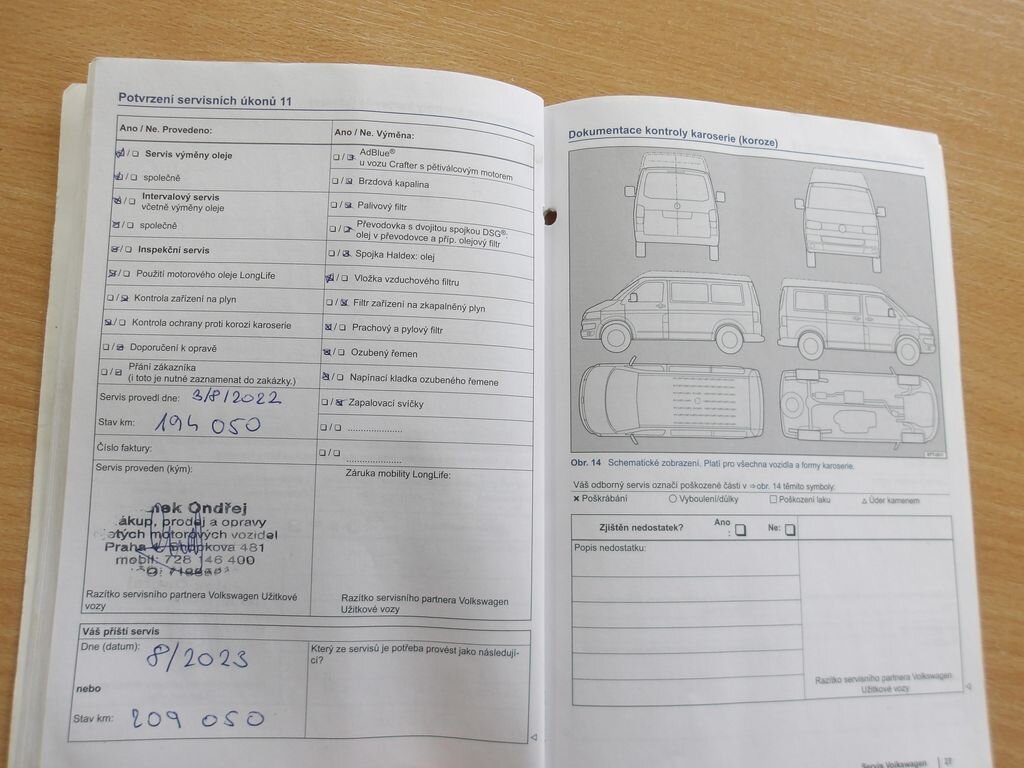 Potvrzení servisních úkonů 11
Ano / Ne. Provedeno:
Servis výměny oleje
společně
Intervalový servis
včetně výměny oleje
společně
Inspekční servis
Použití motorového oleje LongLife
Kontrola zařízení na plyn
Kontrola ochrany proti korozi karoserie
Doporučení k opravě
Přání zákazníka
(i toto je nutné zaznamenat do zakázky.)
Servis provedl dne: 3/8/2022
Stav km: 194 050
Číslo faktury:
Servis proveden (kým):
nek Ondřej
ákup, prodej a opravy
motorových vozidel
Praha 481
mobil: 728 146 400
Razítko servisního partnera Volkswagen Užitkové
vozy
Ano / Ne. Výměna:
AdBlue®
u vozu Crafter s pětiválcovým motorem
Brzdová kapalina
Palivový filtr
Převodovka s dvojitou spojkou DSG®:
olej v převodovce a příp. olejový filtr
Spojka Haldex: olej
Vložka vzduchového filtru
Filtr zařízení na zkapalněný plyn
Prachový a pylový filtr
Ozubený řemen
Napínací kladka ozubeného řemene
Zapalovací svíčky
Záruka mobility LongLife:
Razítko servisního partnera Volkswagen
Užitkové vozy
Váš příští servis
Dne (datum): 8/2023
nebo
Stav km: 209 050
Který ze servisů je potřeba provést jako následují-
cí?
Dokumentace kontroly karoserie (koroze)
Obr. 14 Schematické zobrazení. Platí pro všechna vozidla a formy karoserie.
Váš odborný servis označí poškozené části v ⇒obr. 14 těmito symboly:
✕ Poškrábání ○ Vyboulení/důlky □ Poškození laku △ Úder kamenem
Zjištěn nedostatek? Ano : □ Ne: □
Popis nedostatku:
Razítko servisního partnera Volkswagen
Užitkové vozy
Servis Volkswagen